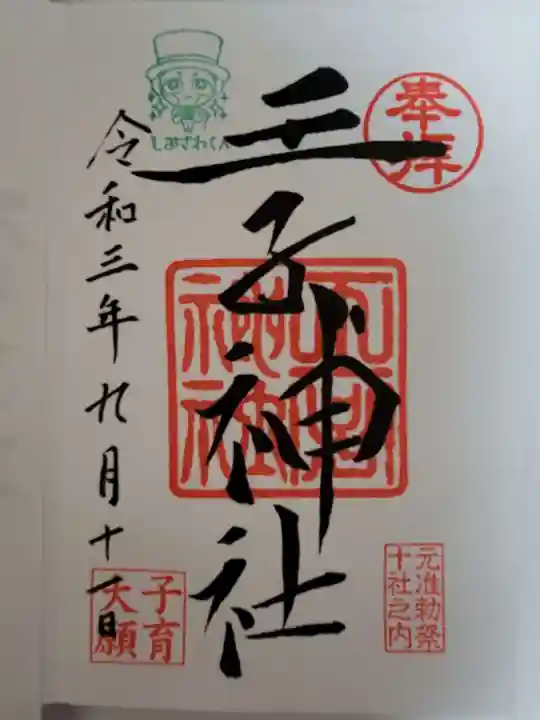 奉拝
王子神社
元准勅祭
十社之内
しあざわくん
令和三年九月十一日
子育
大願